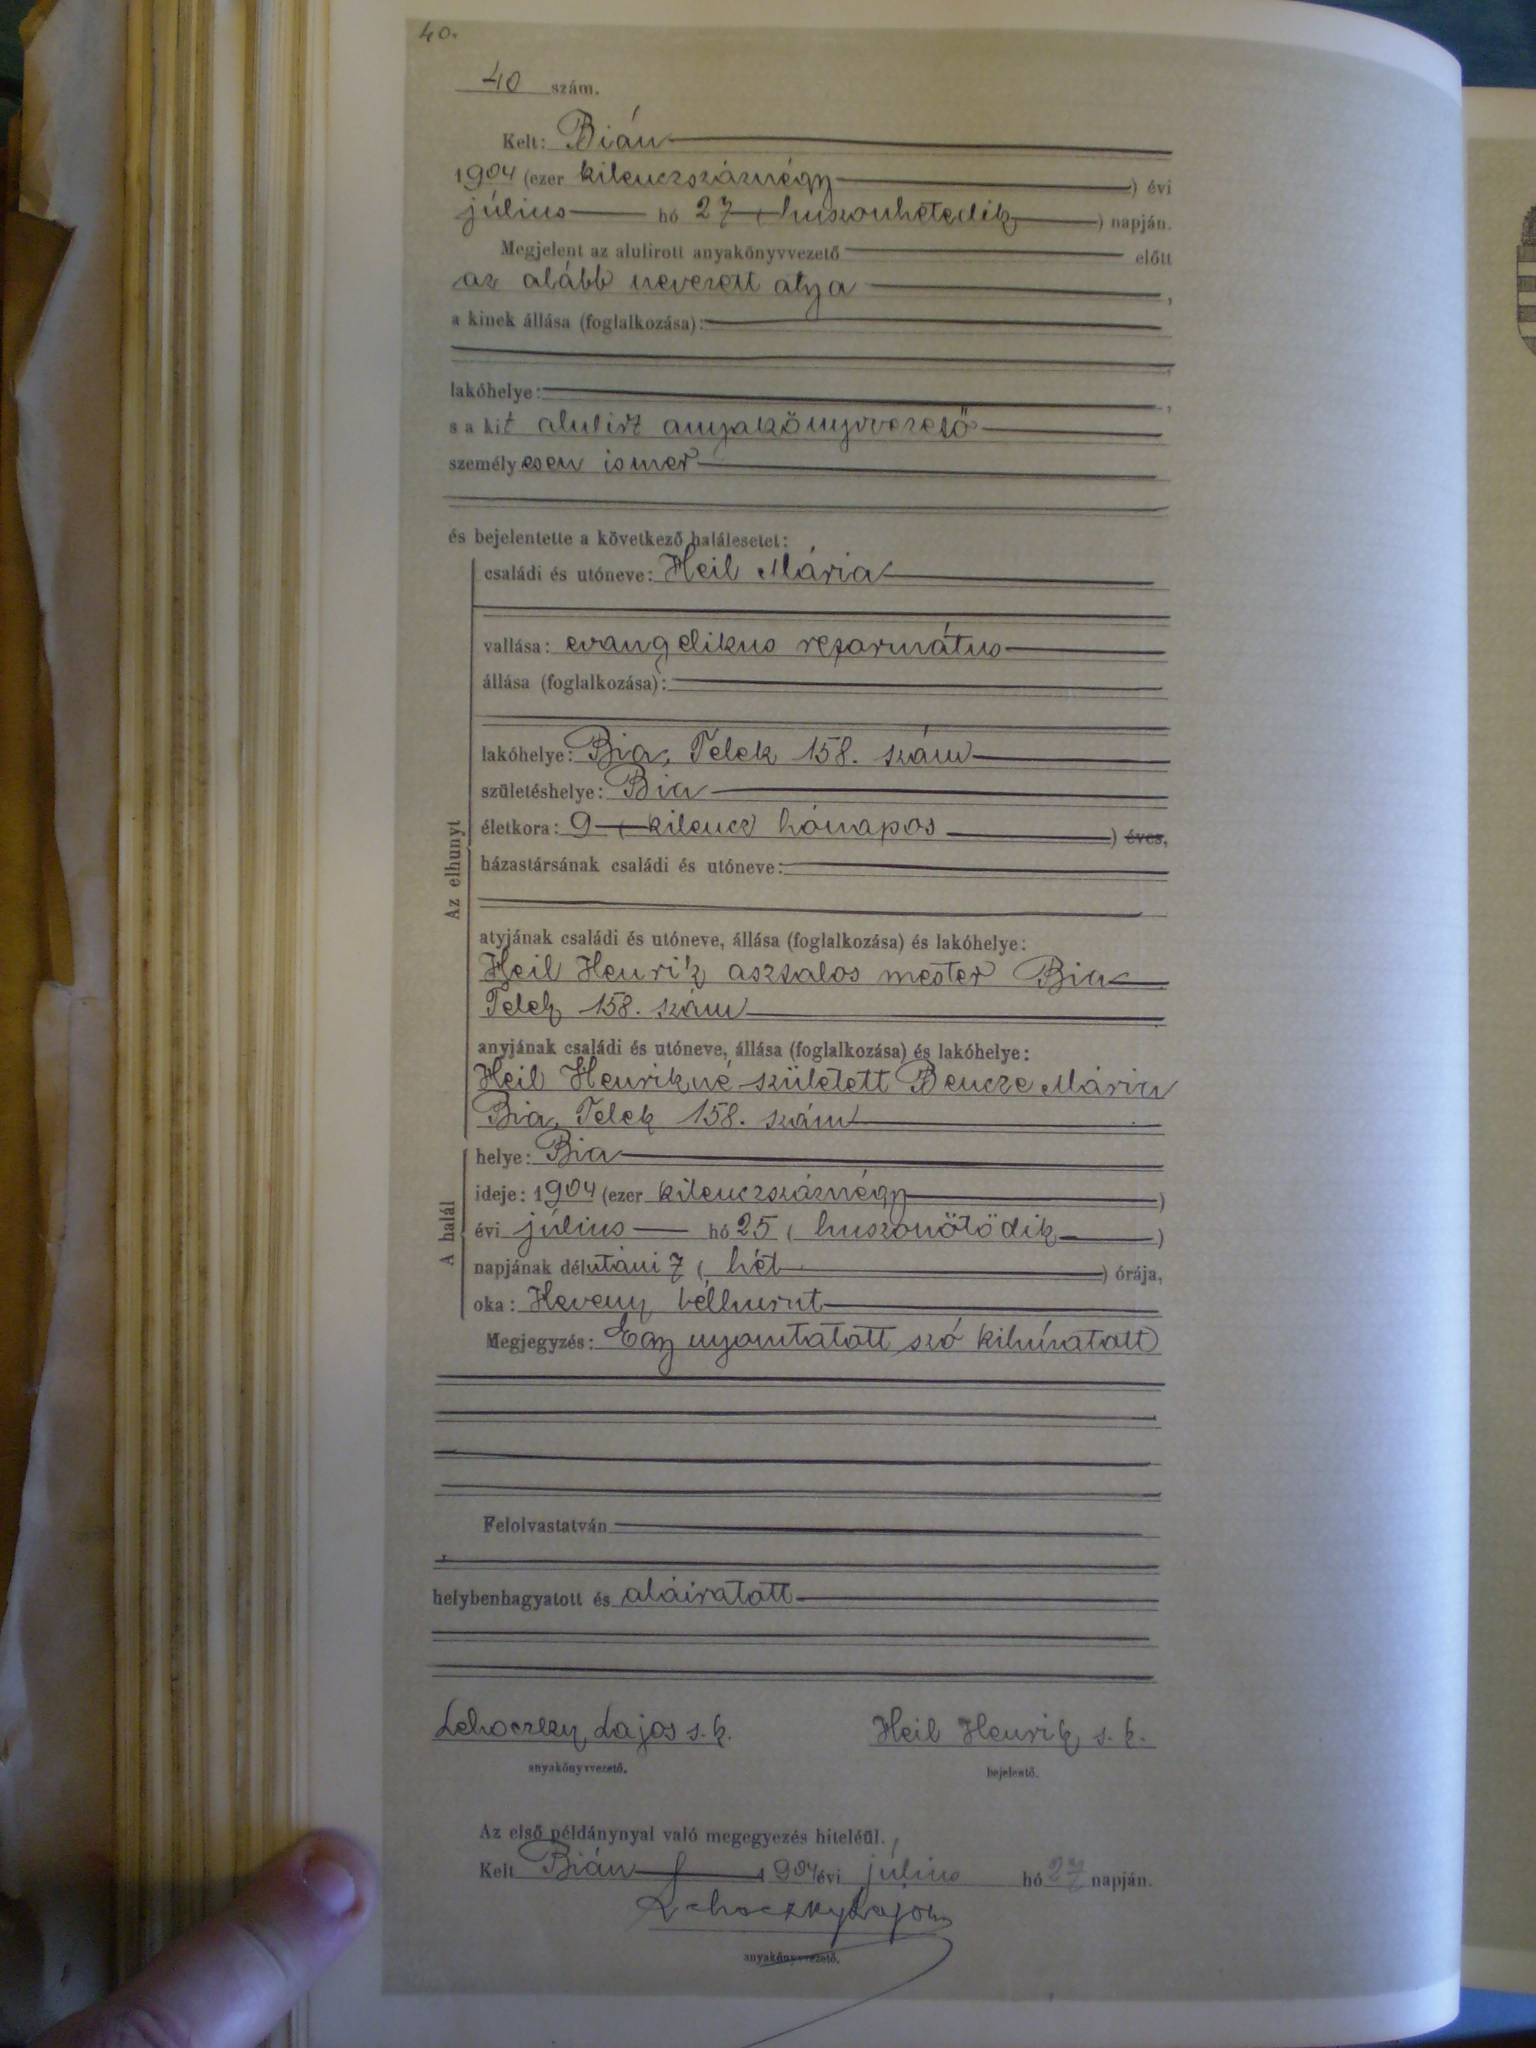 40.
40 szám.
Kelt: Bián
1904 (ezer kilenczszáznégy) évi
július hó 27 (huszonhetedik) napján.
Megjelent az alulirott anyakönyvvezető előtt
az alább nevezett atya,
a kinek állása (foglalkozása):
lakóhelye:,
s a kit alulirt anyakönyvvezető
személyesen ismer
és bejelentette a következő halálesetet:
Az elhunyt
családi és utóneve: Heil Mária
vallása: evangelikus református
állása (foglalkozása):
lakóhelye: Bia, Telek 158. szám
születéshelye: Bia
életkora: 9 (kilencz hónapos) éves,
házastársának családi és utóneve:
atyjának családi és utóneve, állása (foglalkozása) és lakóhelye:
Heil Henrik asztalos mester Bia
Telek 158. szám
anyjának családi és utóneve, állása (foglalkozása) és lakóhelye:
Heil Henrikné született Bencze Mária
Bia, Telek 158. szám
A halál
helye: Bia
ideje: 1904 (ezer kilenczszáznégy)
évi július hó 25 (huszonötödik)
napjának délutáni 7 (hét) órája,
oka: Heveny bélhurut
Megjegyzés: Egy nyomtatott szó kihúzatott
Felolvastatván
helybenhagyatott és aláiratott
Lehoczky Lajos s. k. Heil Henrik s. k.
anyakönyvvezető. bejelentő.
Az első példánynyal való megegyezés hiteléül.
Kelt Bián 1904 évi július hó 27 napján.
Lehoczky Lajos
anyakönyvvezető.